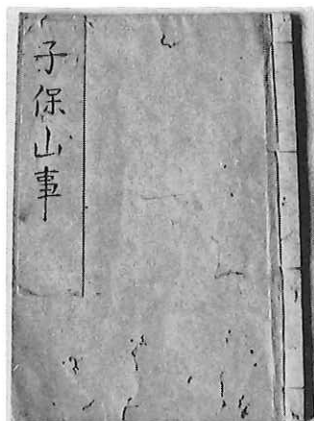 子保山事